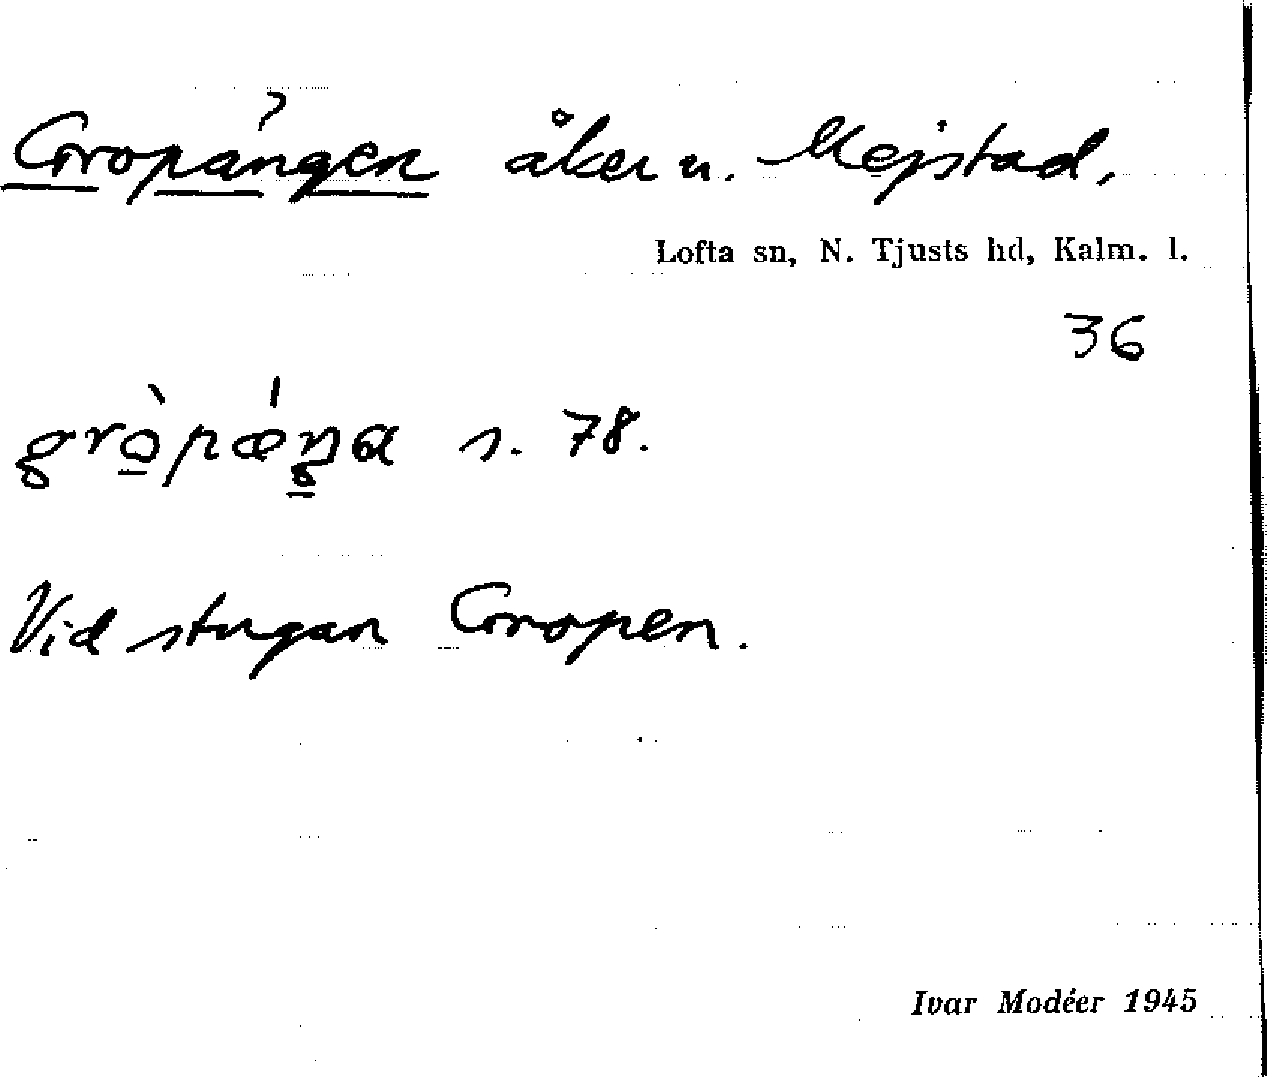 Gropängen åker u. Mejstad,
Lofta sn, N. Tjusts hd, Kalm. l.
36
grò̠pǽŋ̠a s. 78.
Vid stugan Gropen.
Ivar Modéer 1945